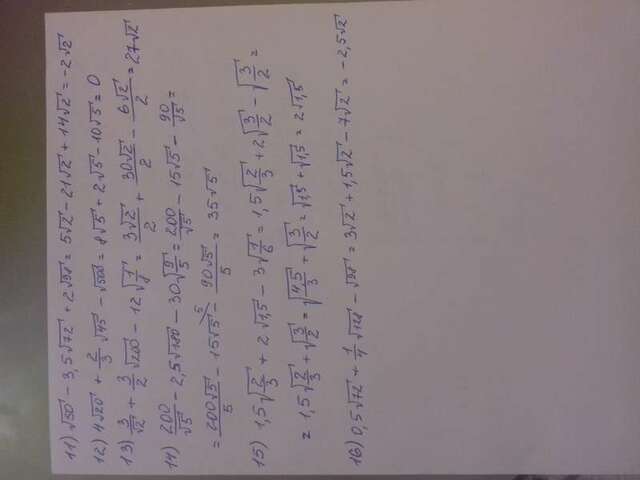 11) √50 - 3,5√72 + 2√98 = 5√2 - 21√2 + 14√2 = -2√2
12) 4√20 + 2/3 √45 - √500 = 8√5 + 2√5 - 10√5 = 0
13) 3/√2 + 3/2 √200 - 12√1/8 = 3√2/2 + 30√2/2 - 6√2/2 = 27√2
14) 200/√5 - 2,5√180 - 30√9/5 = 200/√5 - 15√5 - 90/√5 =
= 200√5/5 - 15√5 - 90√5/5 = 35√5
15) 1,5√2/3 + 2√1,5 - 3√1/6 = 1,5√2/3 + 2√3/2 - √3/2 =
= 1,5√2/3 + √3/2 = √4,5/3 + √3/2 = √1,5 + √1,5 = 2√1,5
16) 0,5√72 + 1/4 √128 - √98 = 3√2 + 1,5√2 - 7√2 = -2,5√2